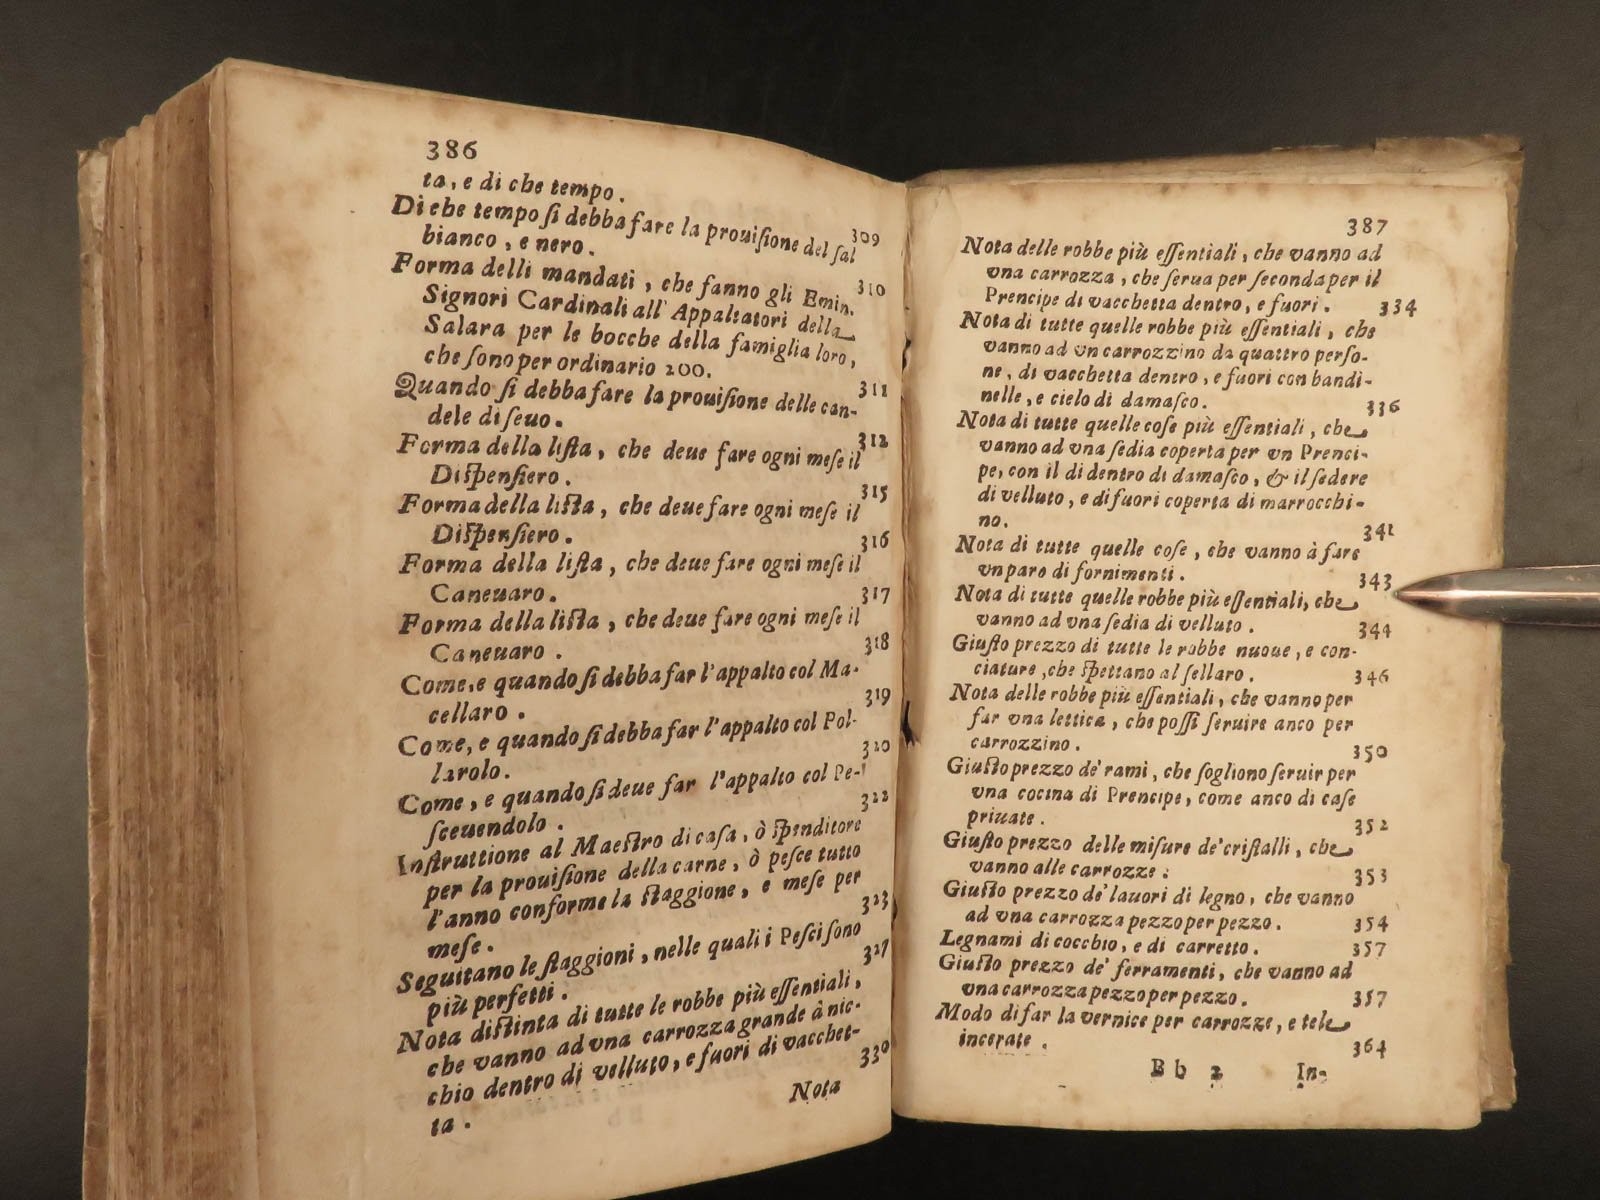 386
ta, e di che tempo. 309
Di che tempo si debba fare la prouisione del sal
bianco, e nero. 310
Forma delli mandati, che fanno gli Emin.
Signori Cardinali all' Appaltatori della
Salara per le bocche della famiglia loro,
che sono per ordinario 200. 311
Quando si debba fare la prouisione delle can-
dele di seuo. 312
Forma della lista, che deue fare ogni mese il
Dispensiero. 315
Forma della lista, che deue fare ogni mese il
Dispensiero. 316
Forma della lista, che deue fare ogni mese il
Caneuaro. 317
Forma della lista, che deue fare ogni mese il
Caneuaro. 318
Come, e quando si debba far l'appalto col Ma-
cellaro. 319
Come, e quando si debba far l'appalto col Pol-
larolo. 320
Come, e quando si deue far l'appalto col Pe-
sceuendolo. 322
Instruttione al Maestro di casa, ò spenditore
per la prouisione della carne, ò pesce tutto
l'anno conforme la staggione, e mese per
mese. 323
Seguitano le staggioni, nelle quali i Pesci sono
più perfetti. 327
Nota distinta di tutte le robbe più essentiali,
che vanno ad vna carrozza grande à nic-
chio dentro di velluto, e fuori di vacchet-
ta. 330
Nota
387
Nota delle robbe più essentiali, che vanno ad
vna carrozza, che serua per seconda per il
Prencipe di vacchetta dentro, e fuori. 334
Nota di tutte quelle robbe più essentiali, che
vanno ad vn carrozzino da quattro perso-
ne, di vacchetta dentro, e fuori con bandi-
nelle, e cielo di damasco. 336
Nota di tutte quelle cose più essentiali, che
vanno ad vna sedia coperta per vn Prenci-
pe, con il di dentro di damasco, & il sedere
di velluto, e di fuori coperta di marrocchi-
no. 341
Nota di tutte quelle cose, che vanno à fare
vn paro di fornimenti. 343
Nota di tutte quelle robbe più essentiali, che
vanno ad vna sedia di velluto. 344
Giusto prezzo di tutte le robbe nuoue, e con-
ciature, che spettano al sellaro. 346
Nota delle robbe più essentiali, che vanno per
far vna lettica, che possi seruire anco per
carrozzino. 350
Giusto prezzo de' rami, che sogliono seruir per
vna cocina di Prencipe, come anco di case
priuate. 352
Giusto prezzo delle misure de' cristalli, che
vanno alle carrozze: 353
Giusto prezzo de' lauori di legno, che vanno
ad vna carrozza pezzo per pezzo. 354
Legnami di cocchio, e di carretto. 357
Giusto prezzo de' ferramenti, che vanno ad
vna carrozza pezzo per pezzo. 357
Modo di far la vernice per carrozze, e tele
incerate. 364
Bb 2 In-